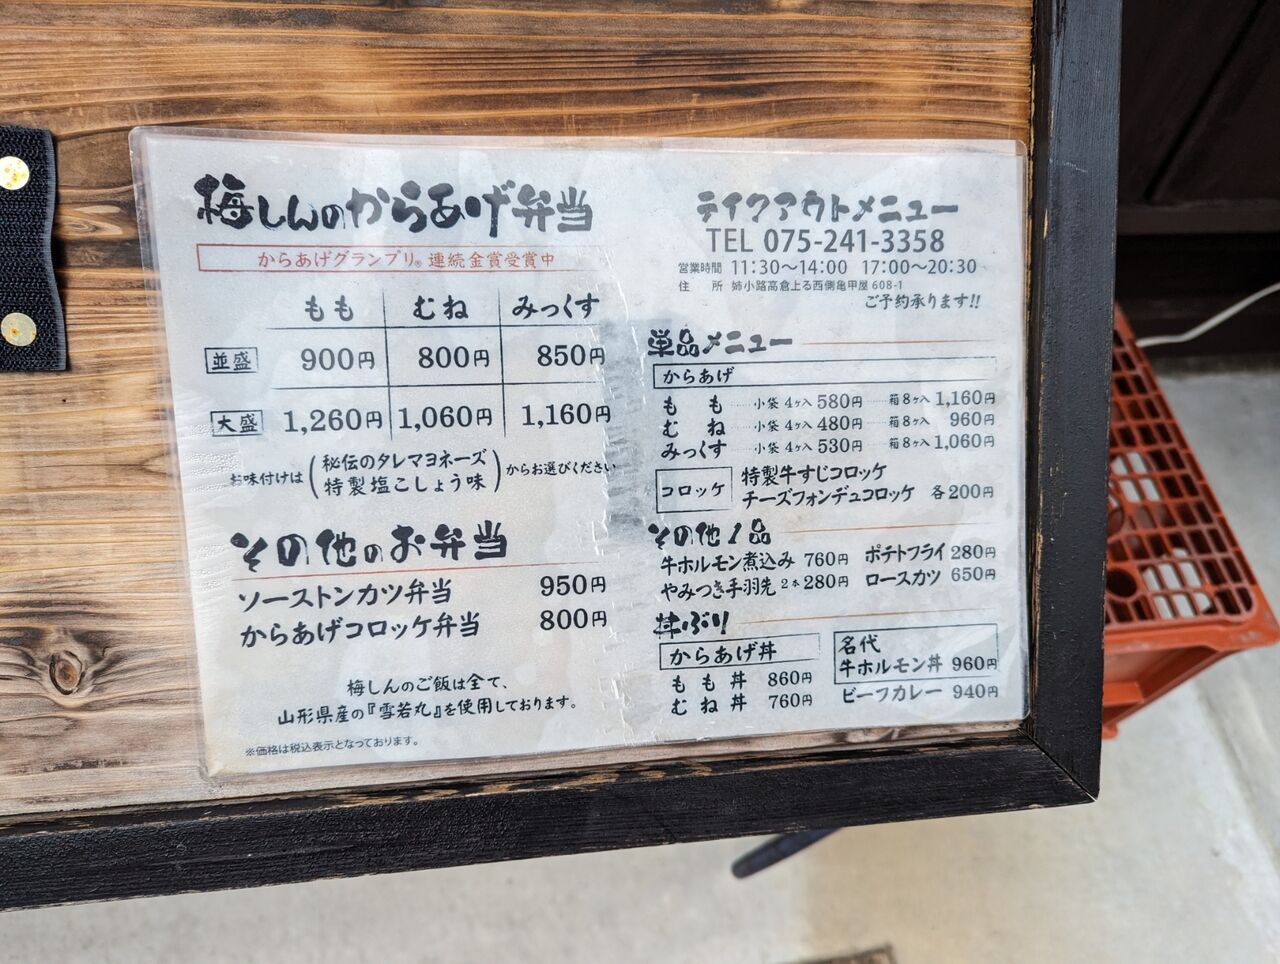 梅しんのからあげ弁当
からあげグランプリ® 連続金賞受賞中
もも むね みっくす
並盛 900円 800円 850円
大盛 1,260円 1,060円 1,160円
お味付けは(秘伝のタレマヨネーズ 特製塩こしょう味)からお選びください
その他のお弁当
ソーストンカツ弁当 950円
からあげコロッケ弁当 800円
梅しんのご飯は全て、
山形県産の『雪若丸』を使用しております。
※価格は税込表示となっております。
テイクアウトメニュー
TEL 075-241-3358
営業時間 11:30〜14:00 17:00〜20:30
住所 姉小路高倉上る西側亀甲屋 608-1
ご予約承ります!!
単品メニュー
からあげ
もも 小袋 4ヶ入 580円 箱 8ヶ入 1,160円
むね 小袋 4ヶ入 480円 箱 8ヶ入 960円
みっくす 小袋 4ヶ入 530円 箱 8ヶ入 1,060円
コロッケ 特製牛すじコロッケ
チーズフォンデュコロッケ 各200円
その他1品
牛ホルモン煮込み 760円 ポテトフライ 280円
やみつき手羽先 2本 280円 ロースカツ 650円
丼ぶり
からあげ丼
もも丼 860円
むね丼 760円
名代
牛ホルモン丼 960円
ビーフカレー 940円